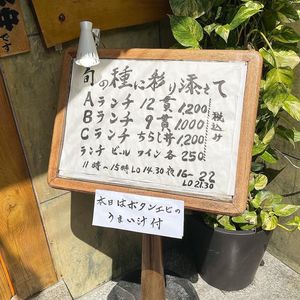 旬の種に彩り添えて
Aランチ 12貫 1,200
Bランチ 9貫 1,000
Cランチ ちらし丼 1,200
税込み
ランチ ビール ワイン 各 250
11時〜15時 LO 14.30 夜 16-22
LO 21.30
本日はボタンエビの
うまい汁付